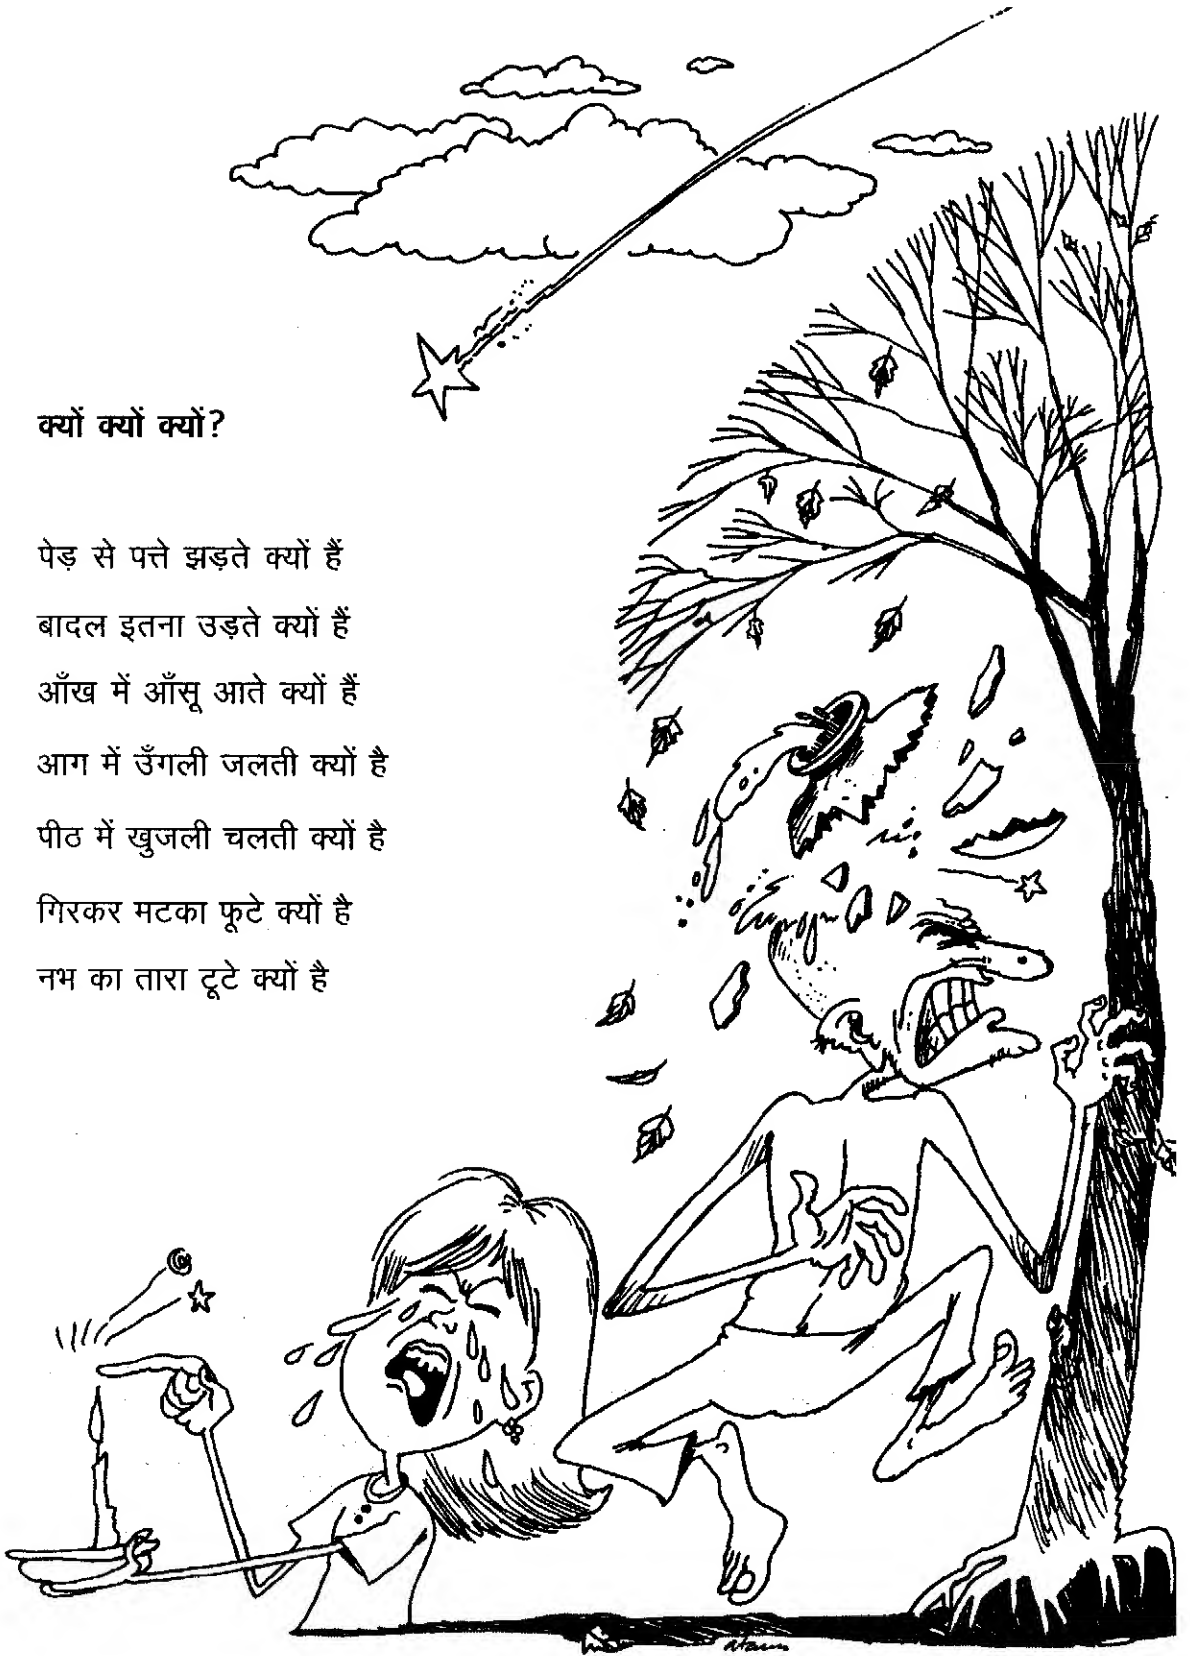 क्यों क्यों क्यों?
पेड़ से पत्ते झड़ते क्यों हैं
बादल इतना उड़ते क्यों हैं
आँख में आँसू आते क्यों हैं
आग में उँगली जलती क्यों है
पीठ में खुजली चलती क्यों है
गिरकर मटका फूटे क्यों है
नभ का तारा टूटे क्यों है